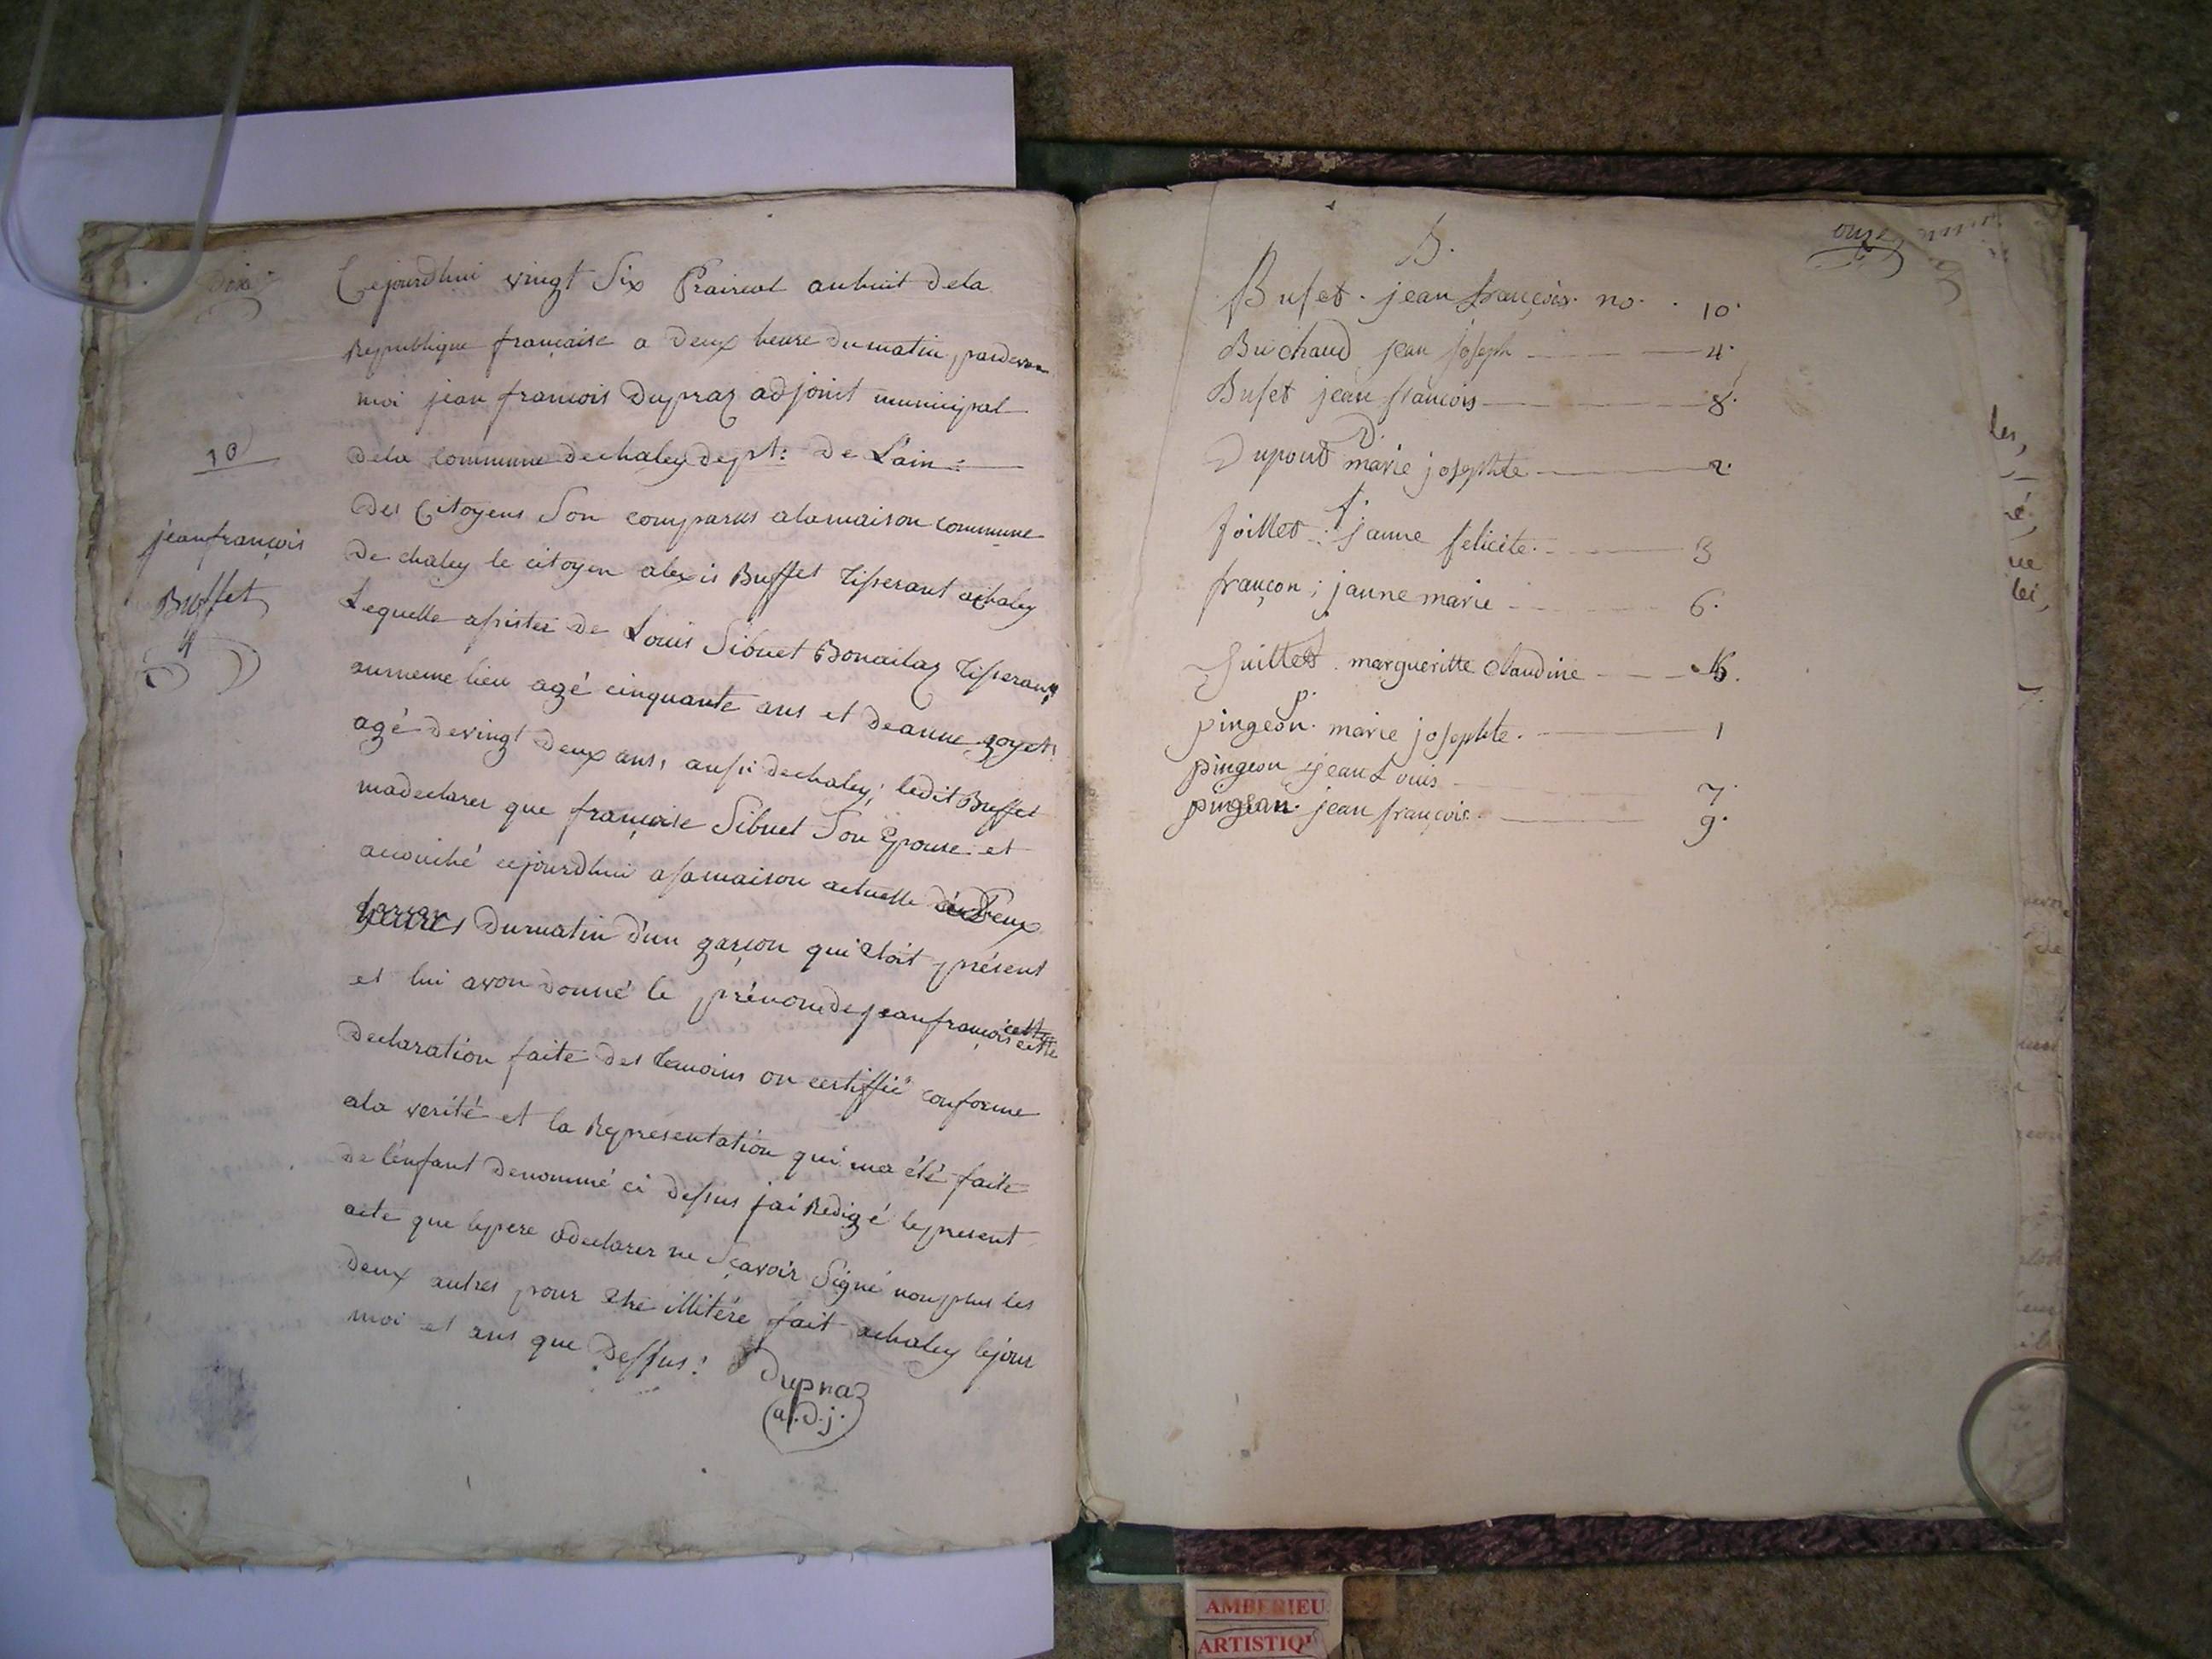 Dix
Cejourdhui vingt Six Praireal anhuit dela
Republique française a deux heure dumatin, pardevan
moi jean francois Dupraz adjoint municipal
dela commune dechaley dept: de Lain :
10
des Citoyens Son comparus alamaison commune
jeanfrançois
Buffet
de chaley le citoyen alexis Buffet tisserant achaley
Lequelle assistéé de Louis Sibuet Bonailaz tisserant
aumeme lieu agé cinquante ans et deanne goyet
agé devingt deux ans, aussi dechaley; ledit Buffet
madeclarer que françoise Sibuet Son Epouse et
acouché cejourdhui asamaison actuelle deux
heures dumatin d'un garçon qui etoit présent
et lui avon donné le prénomde jeanfrançois cette
declaration faite des temoins on certiffié conforme
ala verité et la Représentation qui ma été faite
de lénfant denommé ci dessus jai Redigé lepresent
acte que lepere adeclarer ne Sçavoir Signé nonplus les
deux autres pour etre illitére fait achaley lejour
moi et ans que dessus!
Dupraz
a.d.j.
onze
B.
Bufet. jean françois. no. 10.
Buchaud jean joseph 4.
Bufet jean francois 8.
D.
Dupont marie josephte 2.
f.
foillet. janne felicite. 3
françon; janne marie 6.
J
Juillet. margueritte claudine 5.
p.
pingeon. marie josephte. 1
pingeon jean Louis 7.
pingeon. jean françois. 9.
les,
é,
ne
lei,
de
AMBERIEU
ARTISTIQ